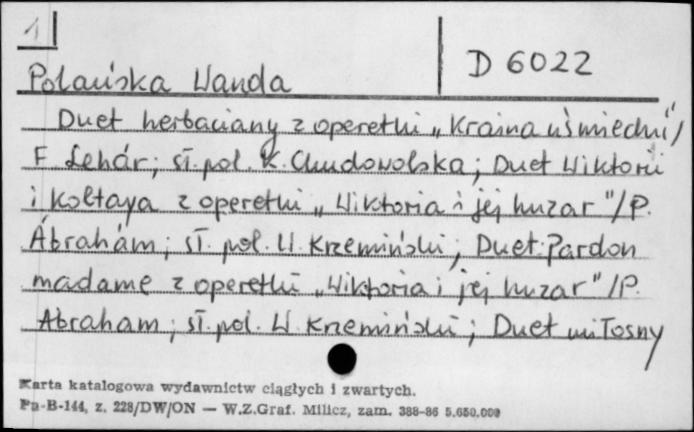 1
D 6022
Polańska Wanda
Duet herbaciany z operetki „Kraina uśmiechu"/
F. Lehár; sł. pol. K. Chudowolska; Duet Wiktorii
i Koltaya z operetki „Wiktoria i jej huzar"/P.
Ábrahám; sł. pol. W. Krzemiński; Duet: Pardon
madame z operetki „Wiktoria i jej huzar"/P.
Abraham; sł. pol. W. Krzemiński; Duet miłosny
Karta katalogowa wydawnictw ciągłych i zwartych.
Pu-B-144, z. 228/DW/ON — W.Z.Graf. Milicz, zam. 388-86 5.650.000